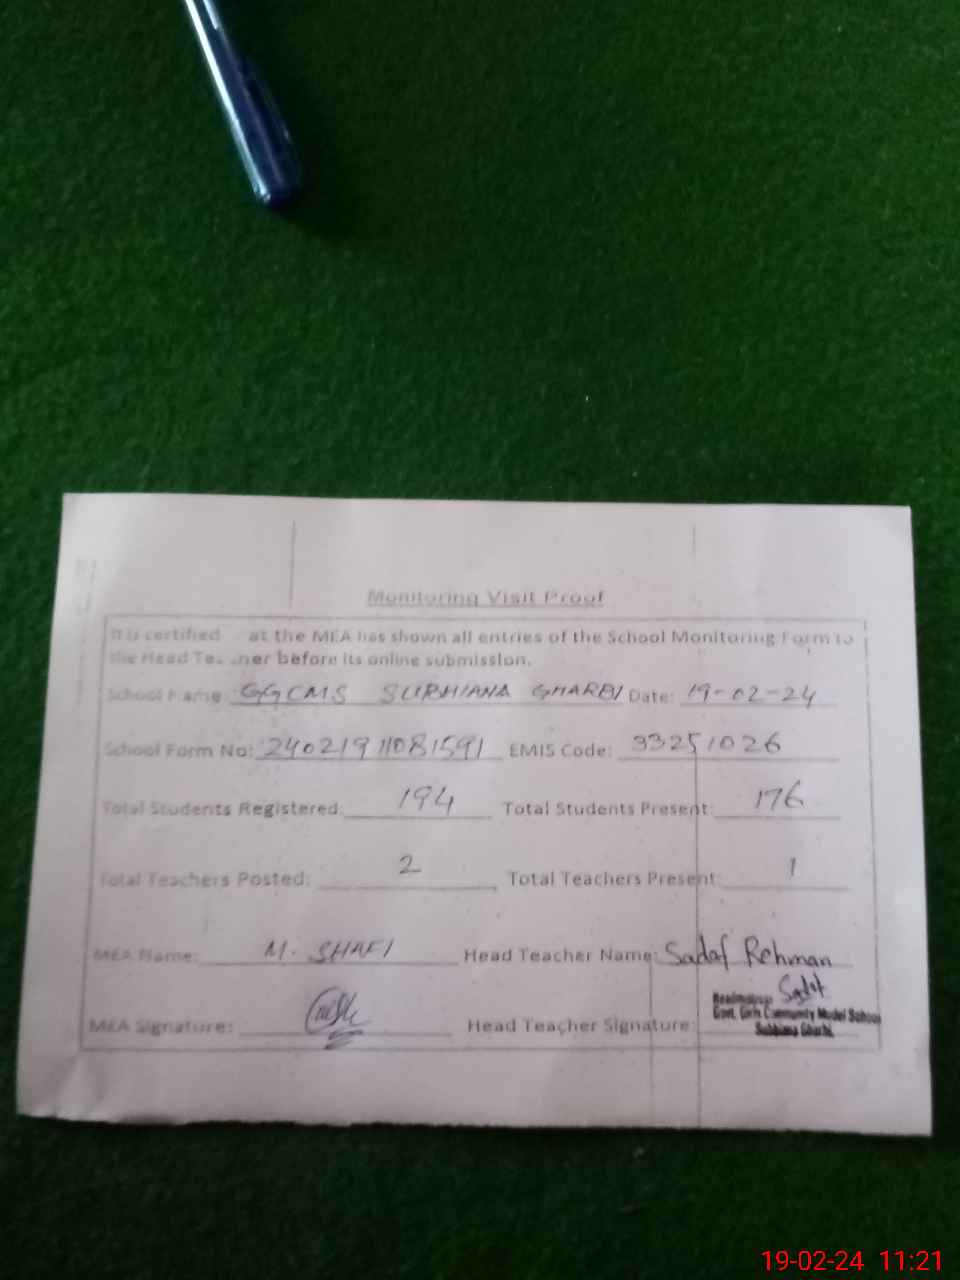 Monitoring Visit Proof
It is certified at the MEA has shown all entries of the School Monitoring Form to
the Head Teacher before its online submission.
School Name: GGCMS SUBHIANA GHARBI Date: 19-02-24
School Form No: 24021911081591 EMIS Code: 33251026
Total Students Registered: 194 Total Students Present: 176
Total Teachers Posted: 2 Total Teachers Present: 1
MEA Name: M. SHAFI Head Teacher Name: Sadaf Rehman
MEA Signature: Head Teacher Signature: Sadaf
Headmistress
Govt. Girls Community Model School
Subhiana Gharbi
19-02-24 11:21